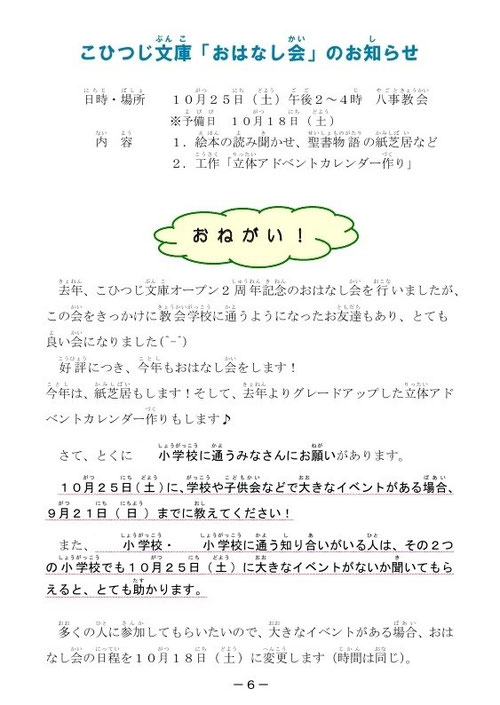 こひつじ文庫「おはなし会」のお知らせ
日時・場所　１０月２５日（土）午後２～４時　八事教会
※予備日　１０月１８日（土）
内　容　１．絵本の読み聞かせ、聖書物語の紙芝居など
２．工作「立体アドベントカレンダー作り」
おねがい！
去年、こひつじ文庫オープン２周年記念のおはなし会を行いましたが、
この会をきっかけに教会学校に通うようになったお友達もあり、とても
良い会になりました(^-^)
好評につき、今年もおはなし会をします！
今年は、紙芝居もします！そして、去年よりグレードアップした立体アド
ベントカレンダー作りもします♪
さて、とくに　　小学校に通うみなさんにお願いがあります。
１０月２５日（土）に、学校や子供会などで大きなイベントがある場合、
９月２１日（日）までに教えてください！
また、　　小学校・　　小学校に通う知り合いがいる人は、その２つ
の小学校でも１０月２５日（土）に大きなイベントがないか聞いてもら
えると、とても助かります。
多くの人に参加してもらいたいので、大きなイベントがある場合、おは
なし会の日程を１０月１８日（土）に変更します（時間は同じ）。
－６－